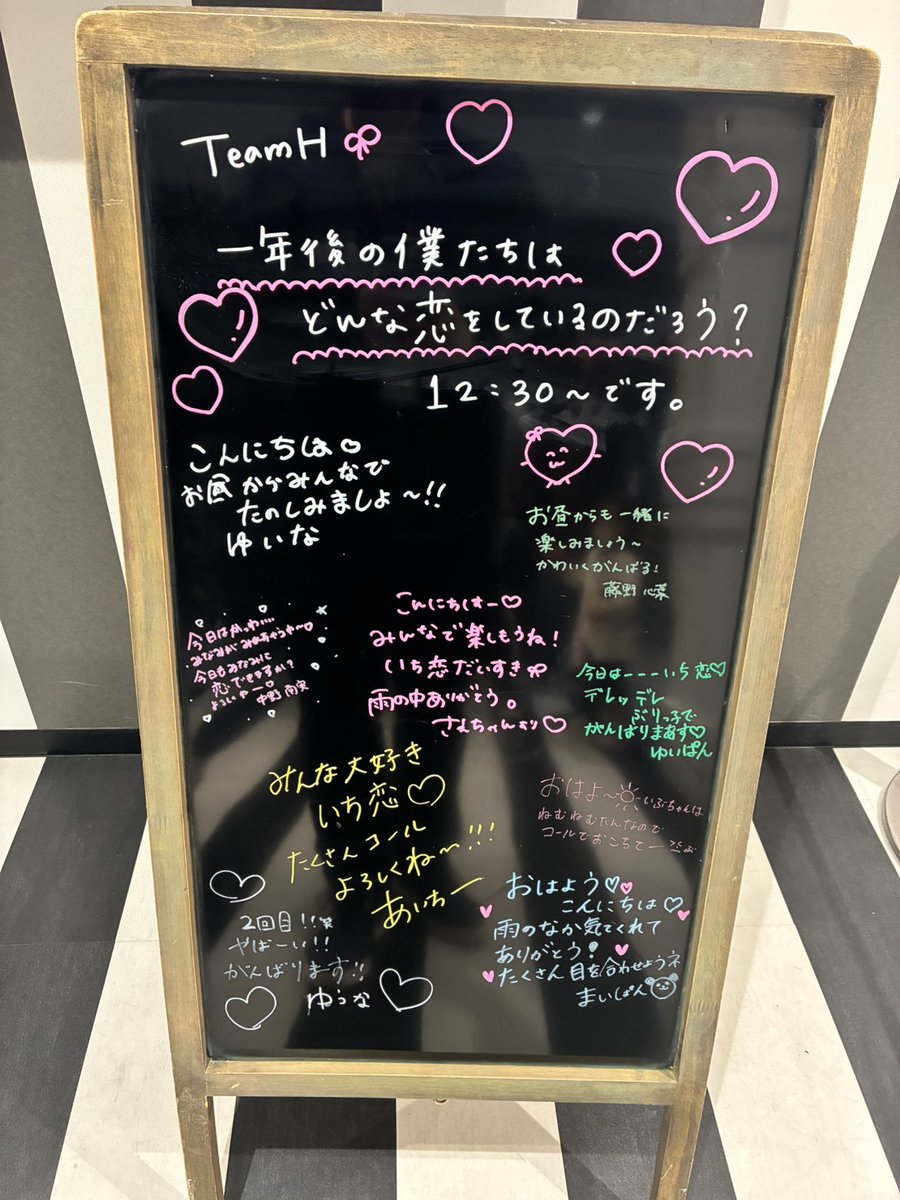 TeamH
一年後の僕たちは
どんな恋をしているのだろう?
12:30〜です。
こんにちは♡
お昼からみんなで
たのしみましょ〜!!
ゆいな
お昼からも一緒に
楽しみましょう〜
かわいくがんばる!
藤野 心葉
今日は
今日もみなみに
恋できますか?
中野 南実
こんにちはー♡
みんなで楽しもうね!
いち恋だいすき
雨の中ありがとう。
さえちゃんより♡
今日はーーーいち恋♡
デレッデレ
ぶりっ子で
がんばりまあす♡
ゆいぱん
みんな大好き
いち恋♡
たくさんコール
よろしくね〜!!!
あいちー
おはよ〜 いぶちゃんは
ねむねむたんなので
コールでおこちてー
おはよう♡
こんにちは♡
雨のなか気てくれて
ありがとう!
たくさん目を合わせようネ
まいぱん
2回目!!笑
やばーい!!
がんばります!!
ゆうな